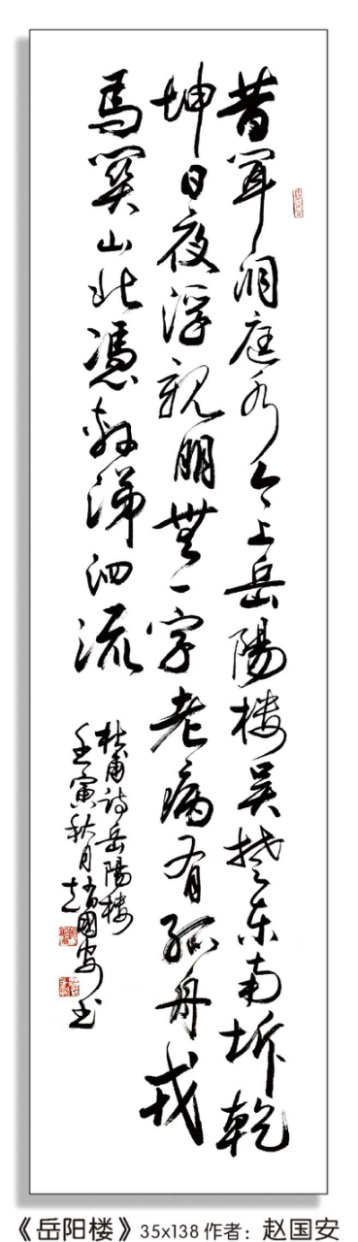 昔闻洞庭水今上岳陽楼吴楚东南坼乾
坤日夜浮親朋無一字老病有孤舟戎
馬関山北憑軒涕泗流
杜甫詩岳陽楼
壬寅秋月赵国安书
《岳阳楼》35x138 作者：赵国安